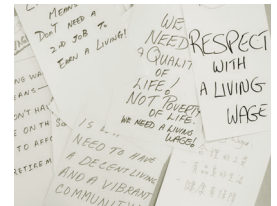 MEANS
DON'T NEED A
2ND JOB TO
EARN A LIVING!
WE
NEED
A QUALITY
OF
LIFE!
NOT POVERTY
OF LIFE.
WE NEED A LIVING
WAGE!
RESPECT
WITH
A LIVING
WAGE
NG WA
EANS—
ON'T HA
E ON TH
TO AFFO
RETIREM
IS
NEED TO HAVE
A DECENT LIVING
AND A VIBRANT
COMMUNITY